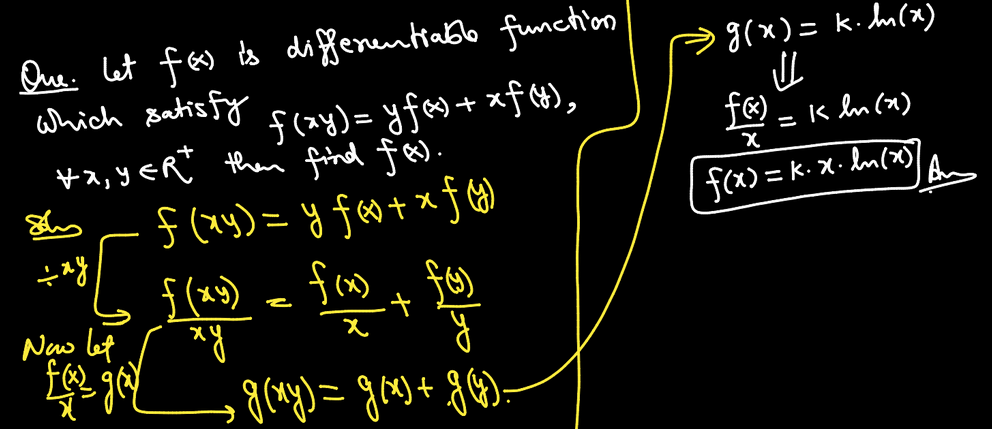 Que. Let f(x) is differentiable function
which satisfy f(xy) = yf(x) + xf(y),
∀ x, y ∈ R⁺ then find f(x).
Soln f(xy) = y f(x) + x f(y)
÷ xy
f(xy)/xy = f(x)/x + f(y)/y
Now let
f(x)/x = g(x)
g(xy) = g(x) + g(y).
g(x) = k · ln(x)
⇓
f(x)/x = k ln(x)
f(x) = k · x · ln(x) Ans